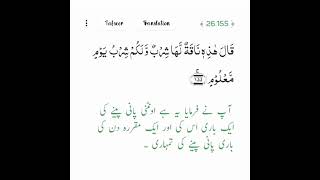 Tafseer Translation 26:155
قَالَ هٰذِهٖ نَاقَةٌ لَّهَا شِرْبٌ وَّلَكُمْ شِرْبُ يَوْمٍ
مَّعْلُوْمٍ ۝١٥٥
آپ نے فرمایا یہ ہے اونٹنی پانی پینے کی
ایک باری اس کی اور ایک مقررہ دن کی
باری پانی پینے کی تمہاری ۔